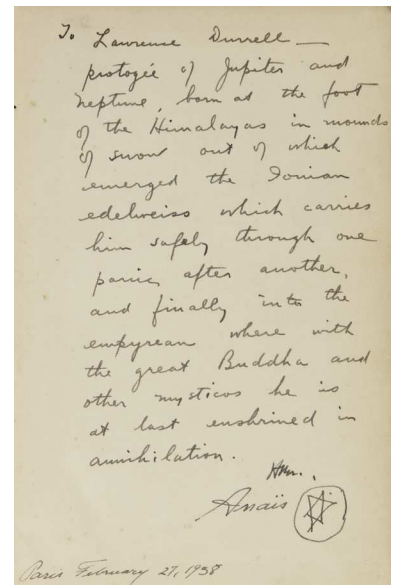 To Lawrence Durrell —
protogée of Jupiter and
Neptune, born at the foot
of the Himalayas in mounds
of snow out of which
emerged the Ionian
edelweiss which carries
him safely through one
panic after another,
and finally into the
empyrean where with
the great Buddha and
other mysticos he is
at last enshrined in
annihilation.
HM.
Anaïs
Paris February 27, 1938